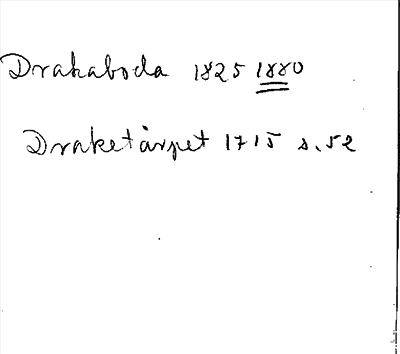 Drakaboda 1825 1880
Draketårpet 1715 s. 52